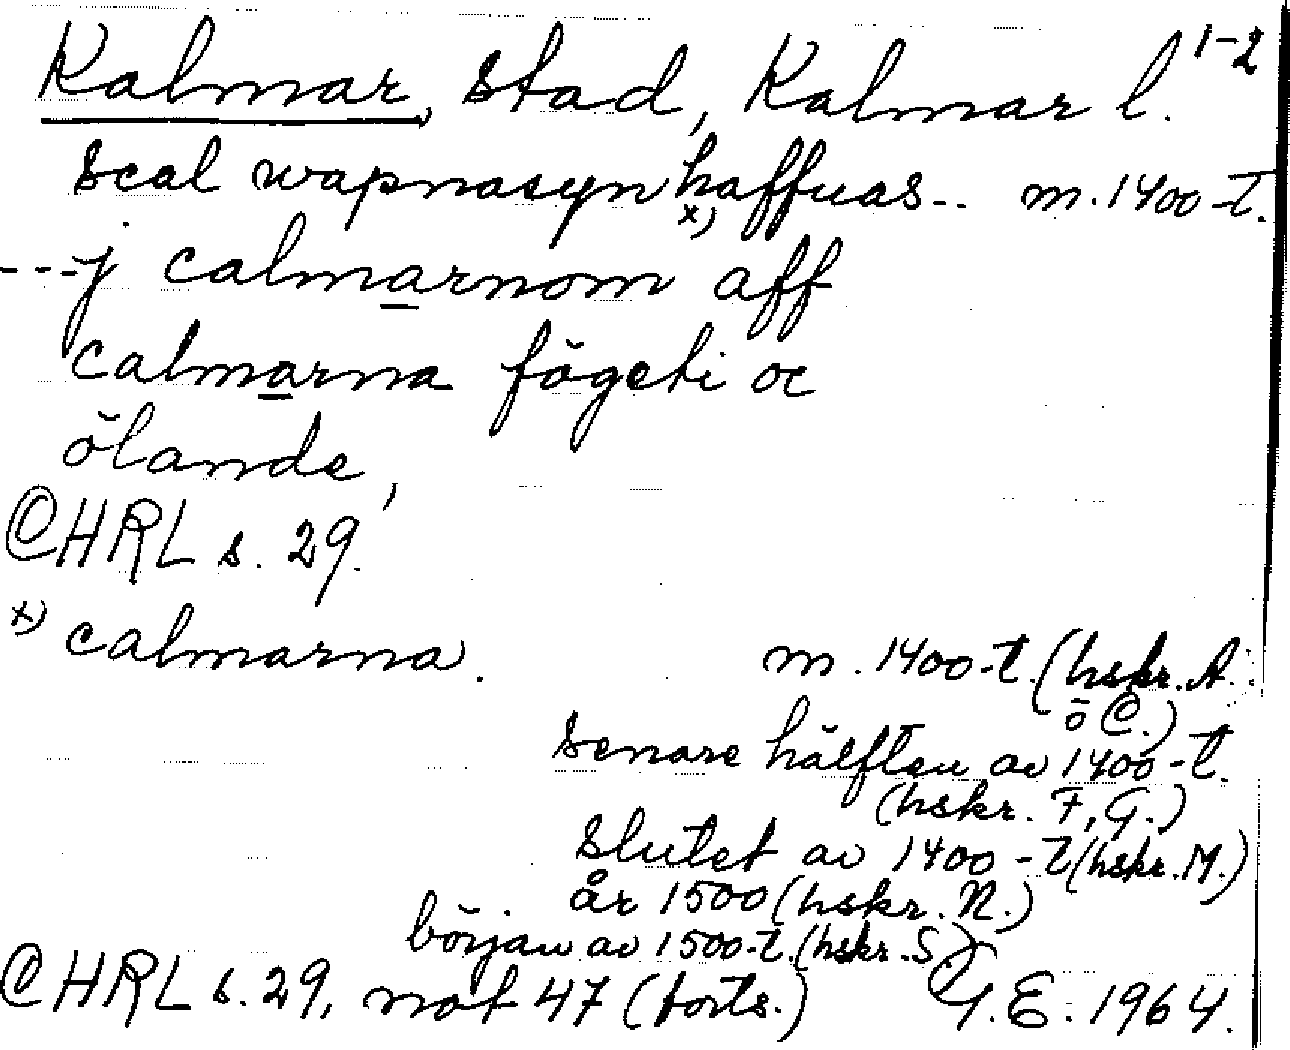 Kalmar, stad, Kalmar l. 1-2
scal wapnasyn haffuas.. m. 1400-t.
x)
---j calmarnom aff
calmarna fögeti oc
ölande,
CHRL s. 29.
x) calmarna. m. 1400-t. (hskr. A.
o C.)
senare hälften av 1400-t.
(hskr. F, G.)
slutet av 1400-t (hskr. M.)
år 1500 (hskr. N.)
början av 1500-t. (hskr. S.)
CHRL s. 29, not 47 (forts.) G. E. 1964.